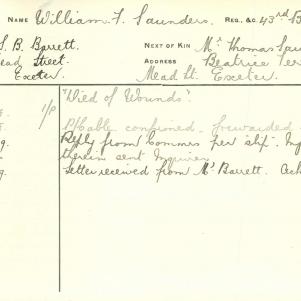 NAME William F. Saunders. REG. &C 43rd B
S. B. Barrett. NEXT OF KIN Mr Thomas Sau
ead Street. ADDRESS Beatrice Ter
Exeter. Mead St. Exeter.
1/P "Died of Wounds".
P/Cable confirmed - forwarded
Reply from Commrs per slip. Ing
therein sent Inquirer
Letter received from Mr Barrett. Ack